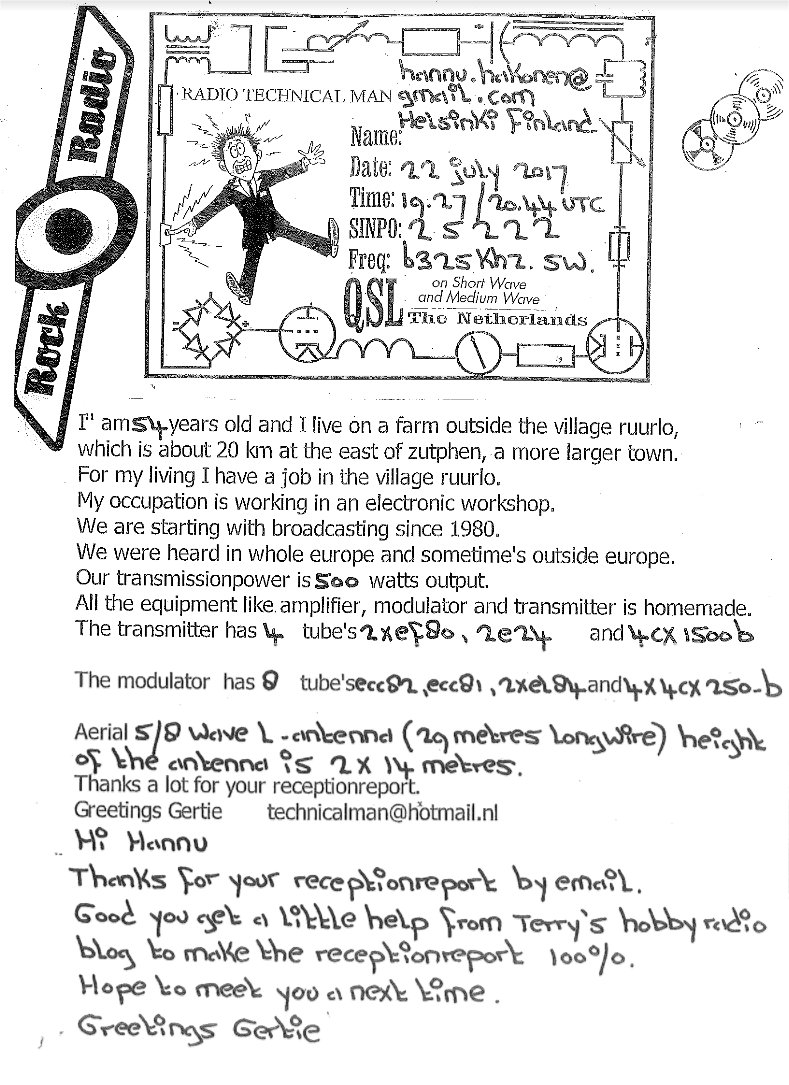 Rock Radio
hannu.hakonen@
RADIO TECHNICAL MAN gmail.com
Helsinki Finland
Name:
Date: 22 july 2017
Time: 19.27/20.44 UTC
SINPO: 25222
Freq: 6325 Khz. SW.
on Short Wave
and Medium Wave
QSL The Netherlands
I'' am 54 years old and I live on a farm outside the village ruurlo,
which is about 20 km at the east of zutphen, a more larger town.
For my living I have a job in the village ruurlo.
My occupation is working in an electronic workshop.
We are starting with broadcasting since 1980.
We were heard in whole europe and sometime's outside europe.
Our transmissionpower is 500 watts output.
All the equipment like amplifier, modulator and transmitter is homemade.
The transmitter has 4 tube's 2xef80, 2e24 and 4CX 1500b
The modulator has 8 tube's ecc82, ecc81, 2xel84 and 4X4CX 250-b
Aerial 5/8 wave L-antenna (29 metres longwire) height
of the antenna is 2 X 14 metres.
Thanks a lot for your receptionreport.
Greetings Gertie technicalman@hotmail.nl
Hi Hannu
Thanks for your receptionreport by email.
Good you get a little help from Terry's hobby radio
blog to make the receptionreport 100%.
Hope to meet you a next time.
Greetings Gertie